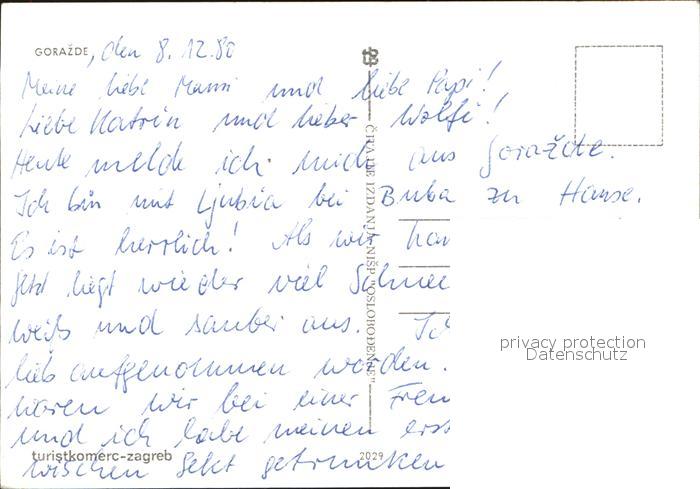 GORAŽDE, den 8.12.80
Meine liebe Mami und liebe Papi!
Liebe Katrin und lieber Wolfi!
Heute melde ich mich aus Goražde.
Ich bin mit Ljubia bei Buba zu Hause.
Es ist herrlich! Als wir
Jetzt liegt wieder viel Schnee
weiß und sauber aus.
lieb aufgenommen worden.
waren wir bei einer
und ich habe meinen
Sekt getrunken
turistkomerc-zagreb
2029
IZDANJA NIŠP "OSLOBOĐENJE"
privacy protection
Datenschutz